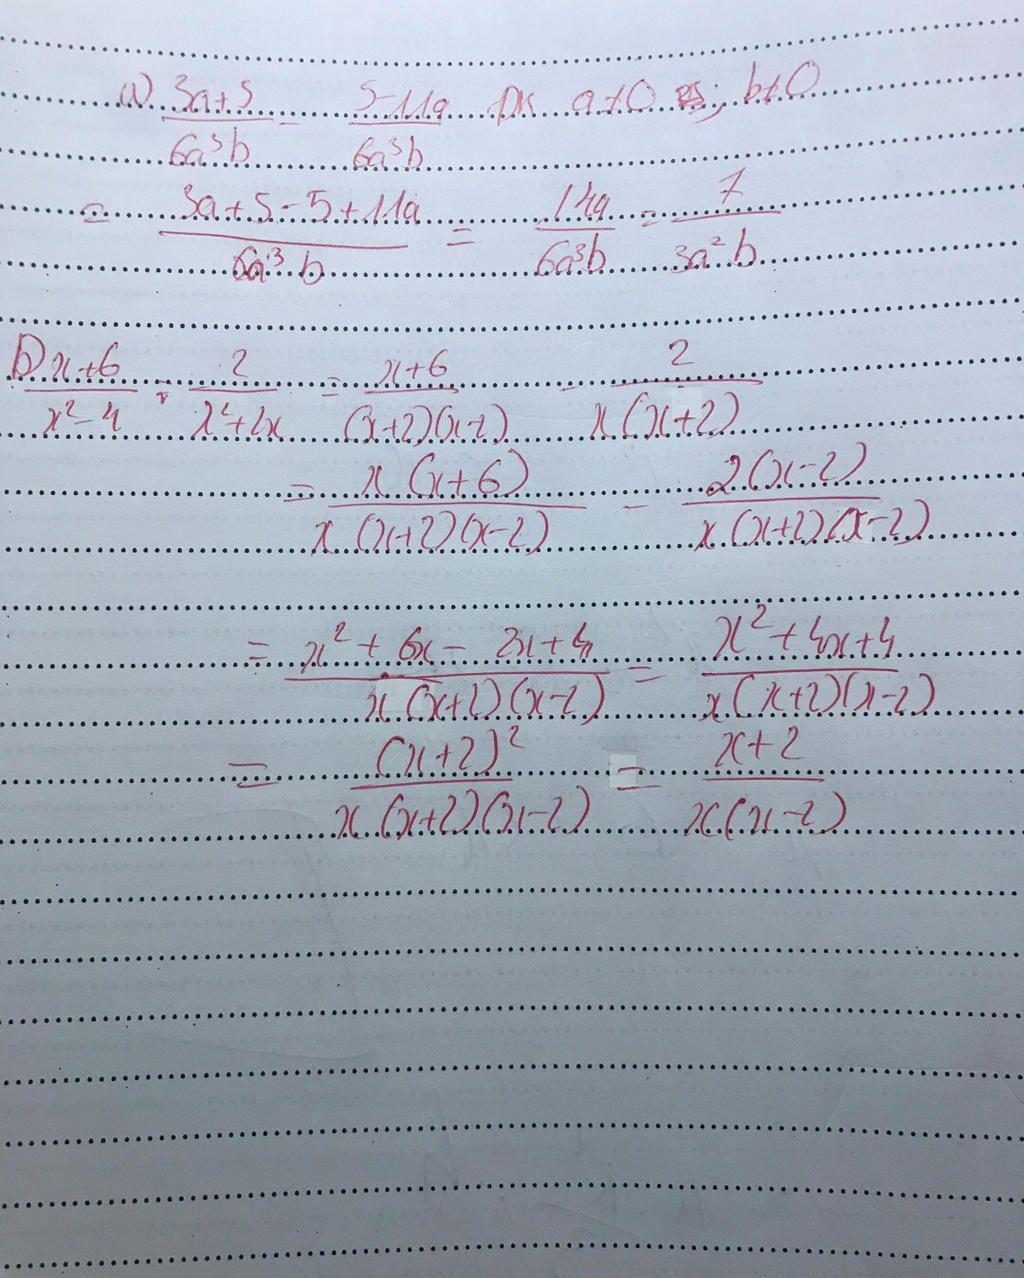 a) (3a+5)/(6a³b) - (5-11a)/(6a³b) ĐK a≠0; b≠0
= (3a+5-5+11a)/(6a³b) = 14a/(6a³b) = 7/(3a²b)
b) (x+6)/(x²-4) - 2/(x²+2x) = (x+6)/((x+2)(x-2)) - 2/(x(x+2))
= x(x+6)/(x(x+2)(x-2)) - 2(x-2)/(x(x+2)(x-2))
= (x²+6x-2x+4)/(x(x+2)(x-2)) = (x²+4x+4)/(x(x+2)(x-2))
= (x+2)²/(x(x+2)(x-2)) = (x+2)/(x(x-2))